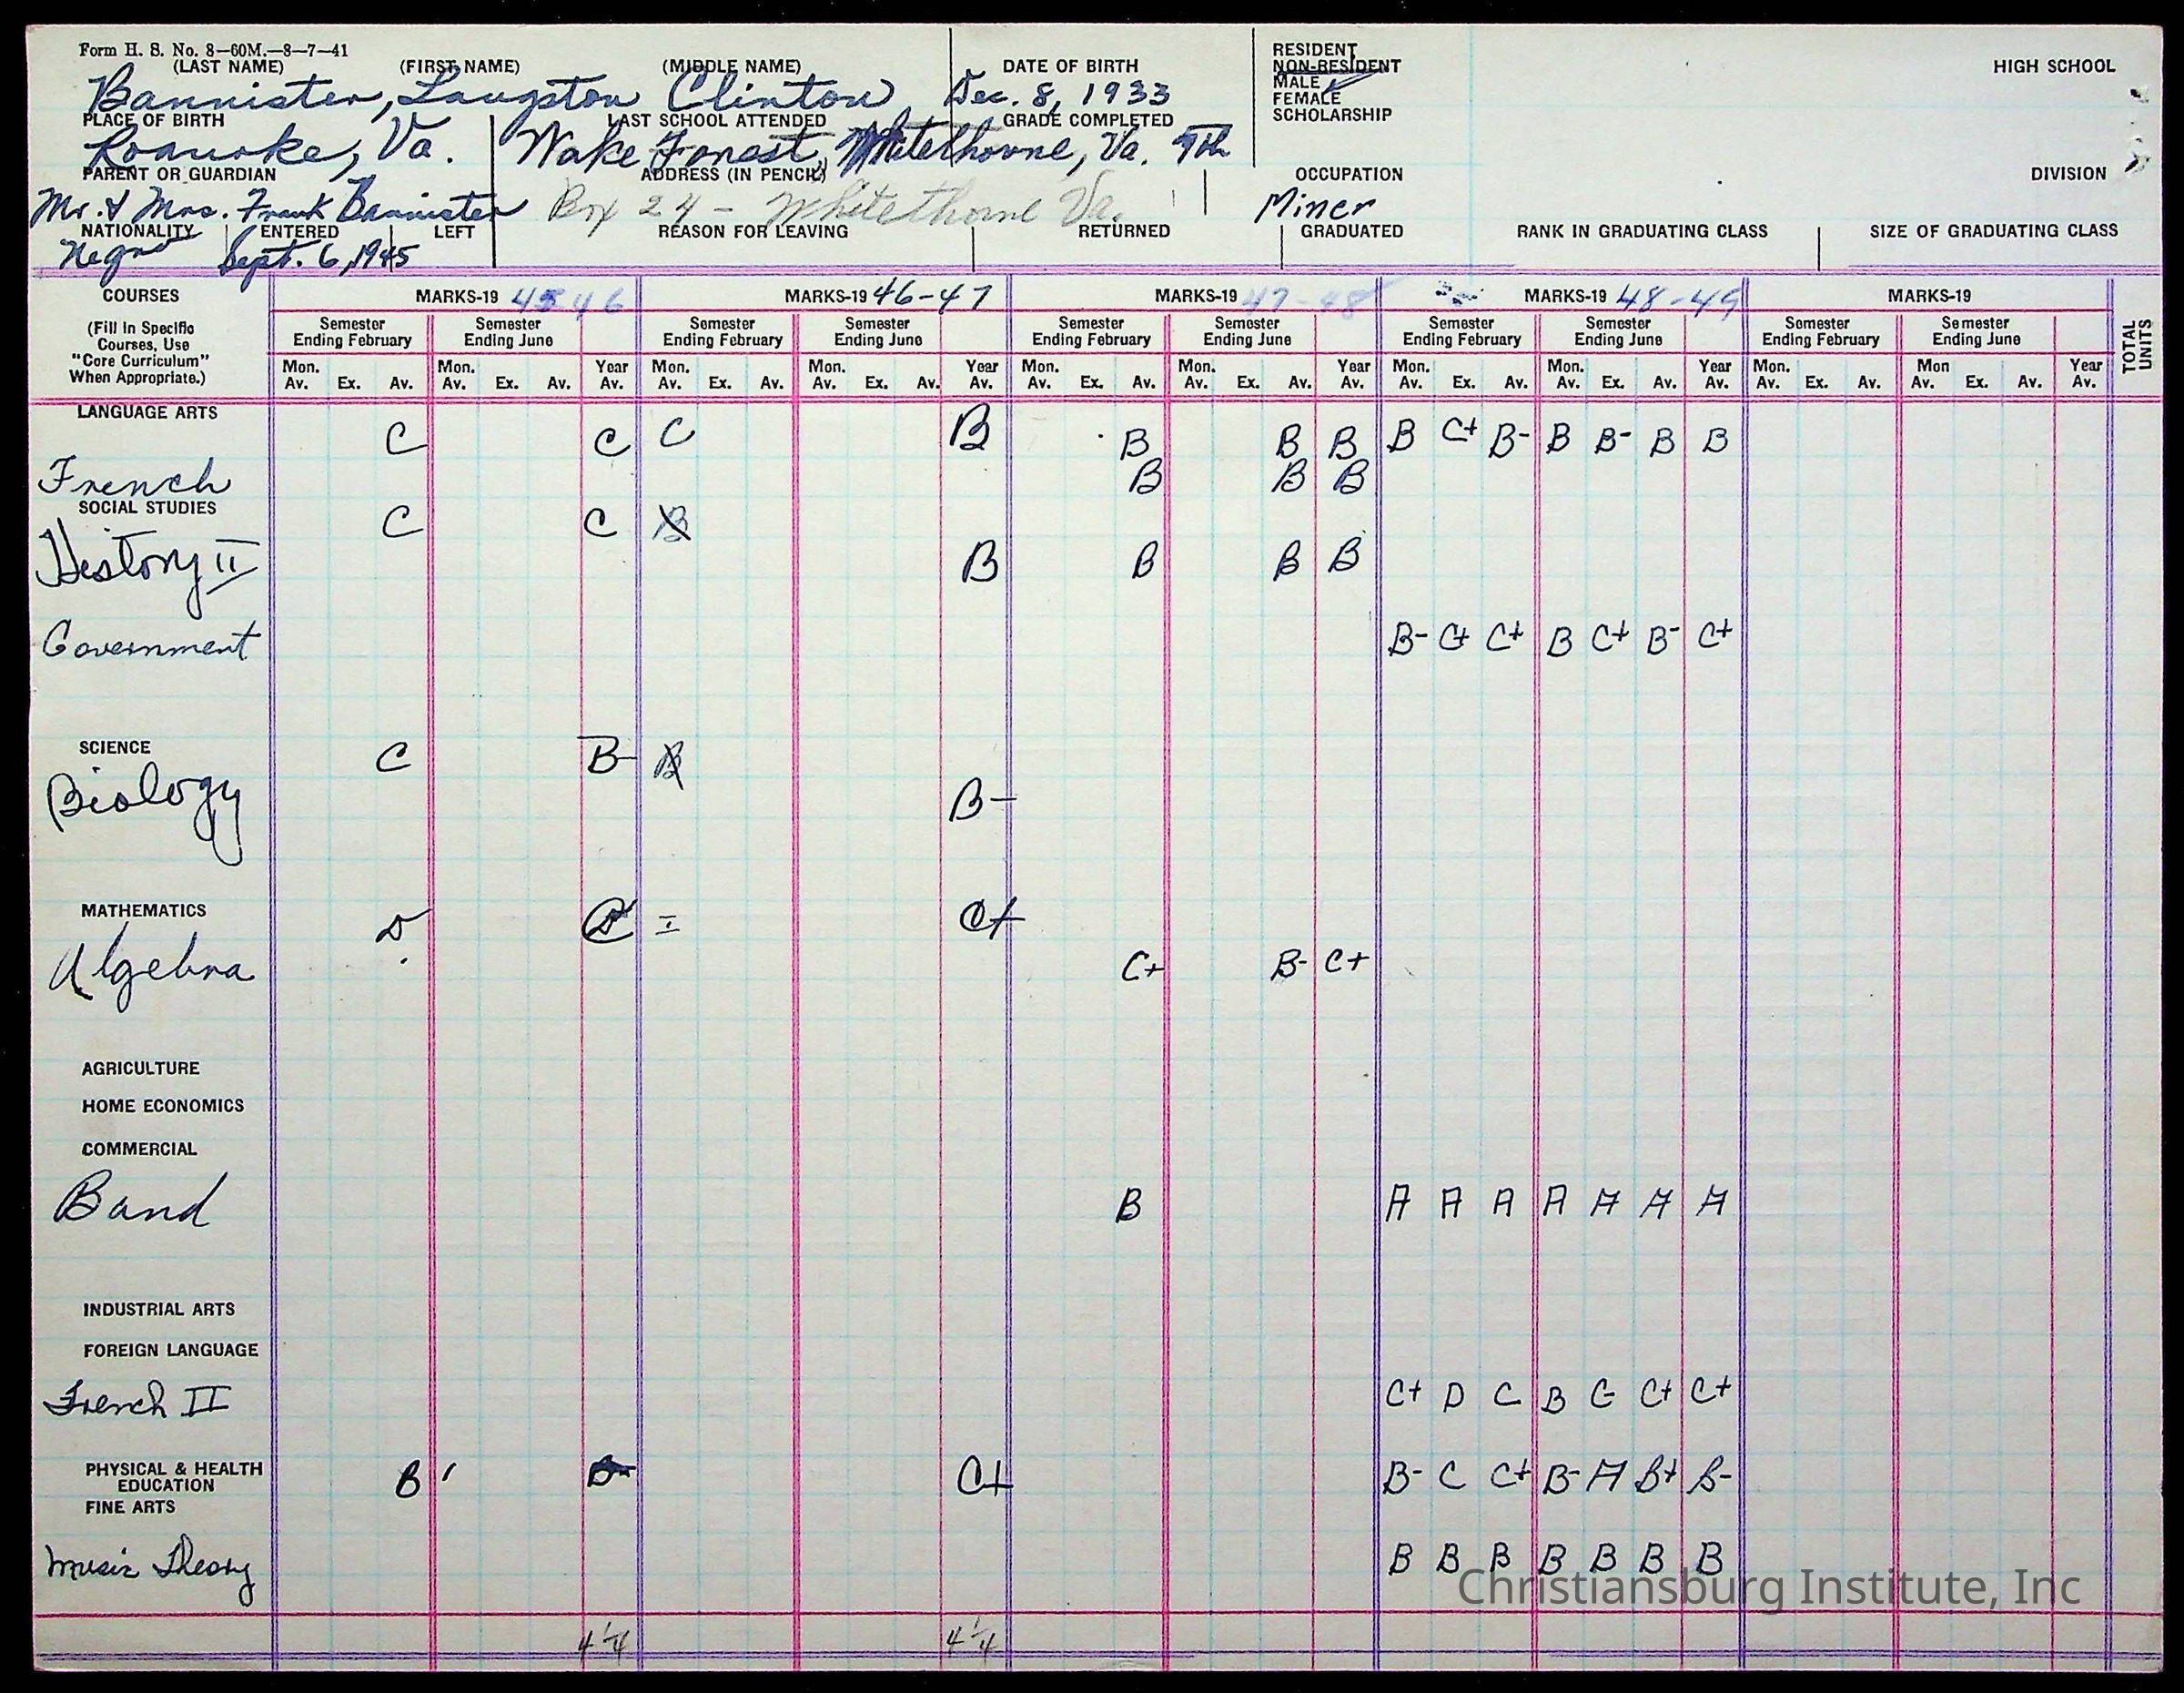 Form H. S. No. 8—60M.—8—7—41
(LAST NAME) (FIRST NAME) (MIDDLE NAME) DATE OF BIRTH
Bannister, Langston Clinton, Dec. 8, 1933
RESIDENT
NON-RESIDENT
MALE
FEMALE
SCHOLARSHIP
HIGH SCHOOL
PLACE OF BIRTH LAST SCHOOL ATTENDED GRADE COMPLETED
Roanoke, Va. Wake Forest, Whitethorne, Va. 7th
PARENT OR GUARDIAN ADDRESS (IN PENCIL) OCCUPATION DIVISION
Mr. & Mrs. Frank Bannister Box 24 - Whitethorne Va. Miner
NATIONALITY ENTERED LEFT REASON FOR LEAVING RETURNED GRADUATED RANK IN GRADUATING CLASS SIZE OF GRADUATING CLASS
Negro Sept. 6, 1945
COURSES MARKS-19 45 46 MARKS-19 46-47 MARKS-19 47-48 MARKS-19 48-49 MARKS-19
(Fill In Specific
Courses, Use
"Core Curriculum"
When Appropriate.)
Semester Ending February Semester Ending June Semester Ending February Semester Ending June Semester Ending February Semester Ending June Semester Ending February Semester Ending June Semester Ending February Semester Ending June
TOTAL UNITS
Mon. Av. Ex. Av. Mon. Av. Ex. Av. Year Av. Mon. Av. Ex. Av. Mon. Av. Ex. Av. Year Av. Mon. Av. Ex. Av. Mon. Av. Ex. Av. Year Av. Mon. Av. Ex. Av. Mon. Av. Ex. Av. Year Av. Mon. Av. Ex. Av. Mon Av. Ex. Av. Year Av.
LANGUAGE ARTS
C C C B B B B B C+ B- B B- B B
French B B B
SOCIAL STUDIES
C C B
History II B B B B
Government B- C+ C+ B C+ B- C+
SCIENCE C B- B
Biology B-
MATHEMATICS D I C+
Algebra C+ B- C+
AGRICULTURE
HOME ECONOMICS
COMMERCIAL
Band B A A A A A A A
INDUSTRIAL ARTS
FOREIGN LANGUAGE
French II C+ D C B C C+ C+
PHYSICAL & HEALTH
EDUCATION B C+ B- C C+ B- A B+ B-
FINE ARTS
Music Theory B B B B B B B
Christiansburg Institute, Inc
4 1/4 4 1/4